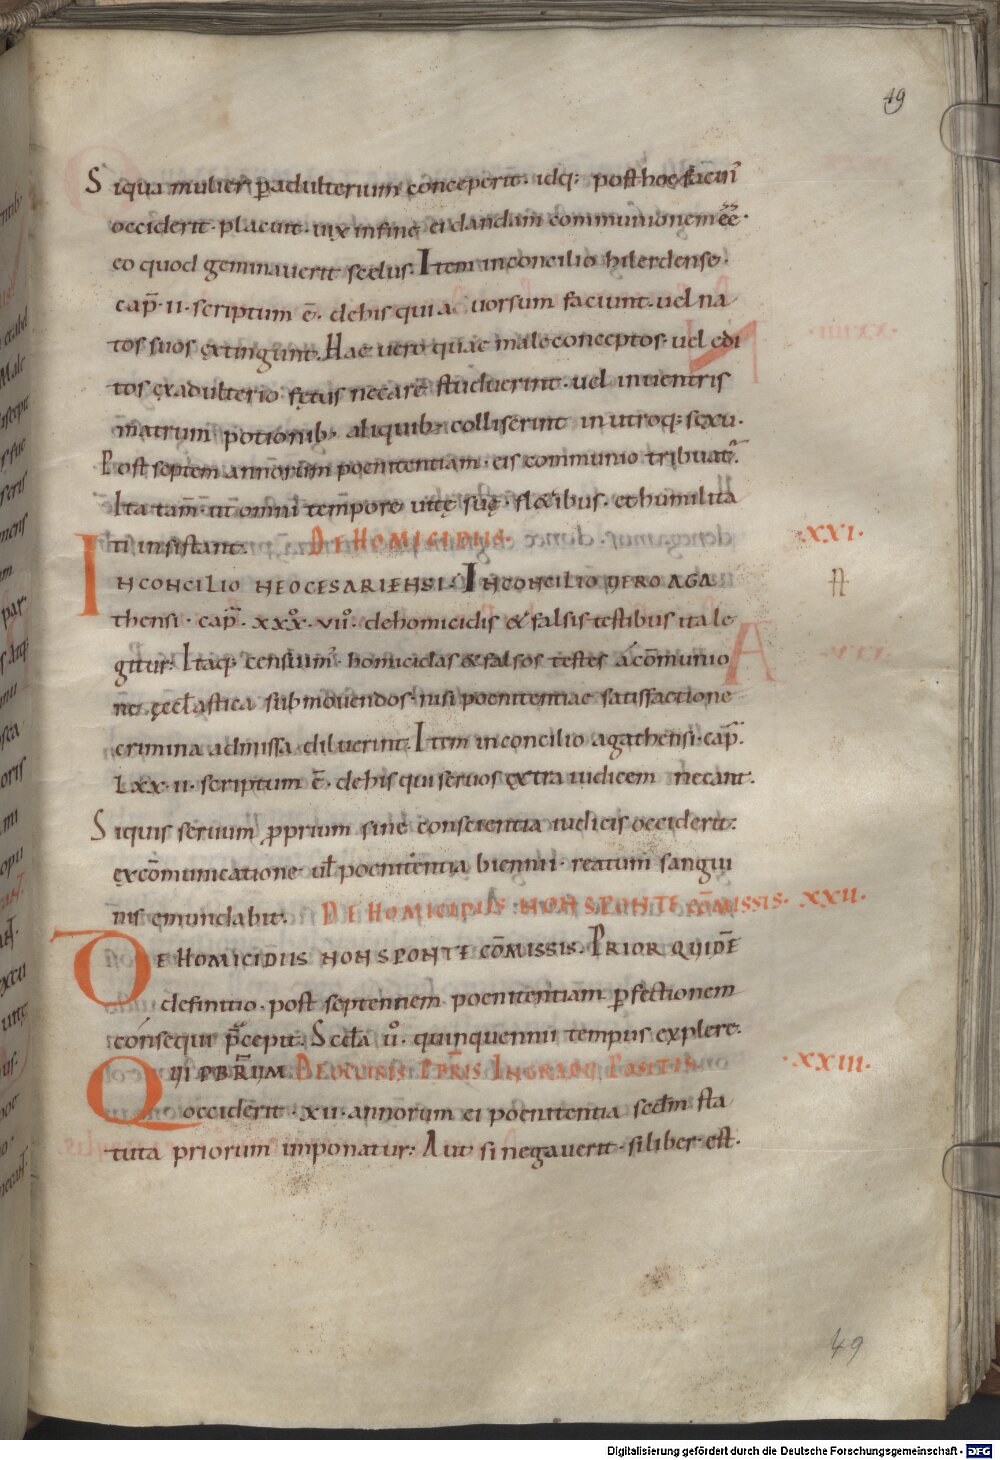 49
Siqua mulier p̄ adulterium conceperit· idq; post hoc facin̄
occiderit· placuit· uix in fine ei dandam communionem ēē·
eo quod geminauerit scelus. Item in concilio hilerdense·
cap̄· ii· scriptum ē· de his qui auorsum faciunt· uel na
tos suos extingunt. Hae uero quae male conceptos· uel edi
tos ex adulterio fętus necare studuerint· uel in uentris
matrum potionib; aliquib; colliserint in utroq; sexu·
Post septem annorum poenitentiam· eis communio tribuat̄.
Ita tam̄· ut omni tempore uitę suę· fletibus· et humilita
ti insistant. DE HOMICIDIIS· ·XXI·
IN CONCILIO NEOCESARIENSI· IN CONCILIO UERO AGA
thensi· cap̄· xxx· vii· de homicidis & falsis testibus ita le
gitur· Itaq; censuim̄· homicidas & falsos testes á cōmunio
ne ęccƚastica submouendos· nisi poenitentiae satisfactione
crimina admissa diluerint. Item in concilio agathensi· cap̄·
Lxx· ii· scriptum ē· de his qui seruos extra iudicem necant·
Siquis seruum p̄prium sine conscientia iudicis occiderit·
excōmunicatione uƚ poenitentia biennii· reatum sangui
nis emundabit. DE HOMICIDIIS NON SPONTE CŌMISSIS· ·XXII·
DE HOMICIDIIS NON SPONTE CŌMISSIS. PRIOR QUIDĒ
definitio· post septennem poenitentiam p̄fectionem
cónsequi p̄cepit. Sccƚa ů· quinquennii tempus explere·
QUI PBR̄UM DE OCCISIS PBR̄IS IN GRADU POSITIS ·XXIII·
occiderit· xii· annorum ei poenitentia secdm̄ sta
tuta priorum imponatur· Aut si negauerit· si liber est·
49
Digitalisierung gefördert durch die Deutsche Forschungsgemeinschaft - DFG